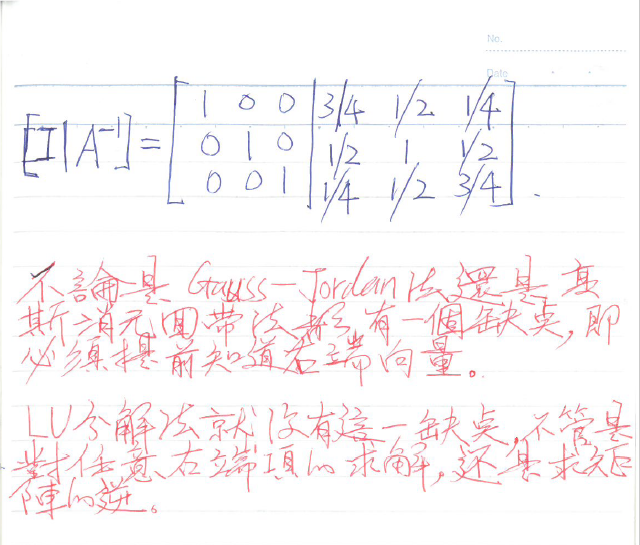 No.
Date
[I|A⁻¹] = [ 1 0 0 | 3/4 1/2 1/4
0 1 0 | 1/2 1 1/2
0 0 1 | 1/4 1/2 3/4 ].
不論是 Gauss-Jordan法還是高
斯消元回帶法都有一個缺点,即
必须提前知道右端向量。
LU分解法就没有這一缺点,不管是
對任意右端項的求解,还是求矩
陣的逆。